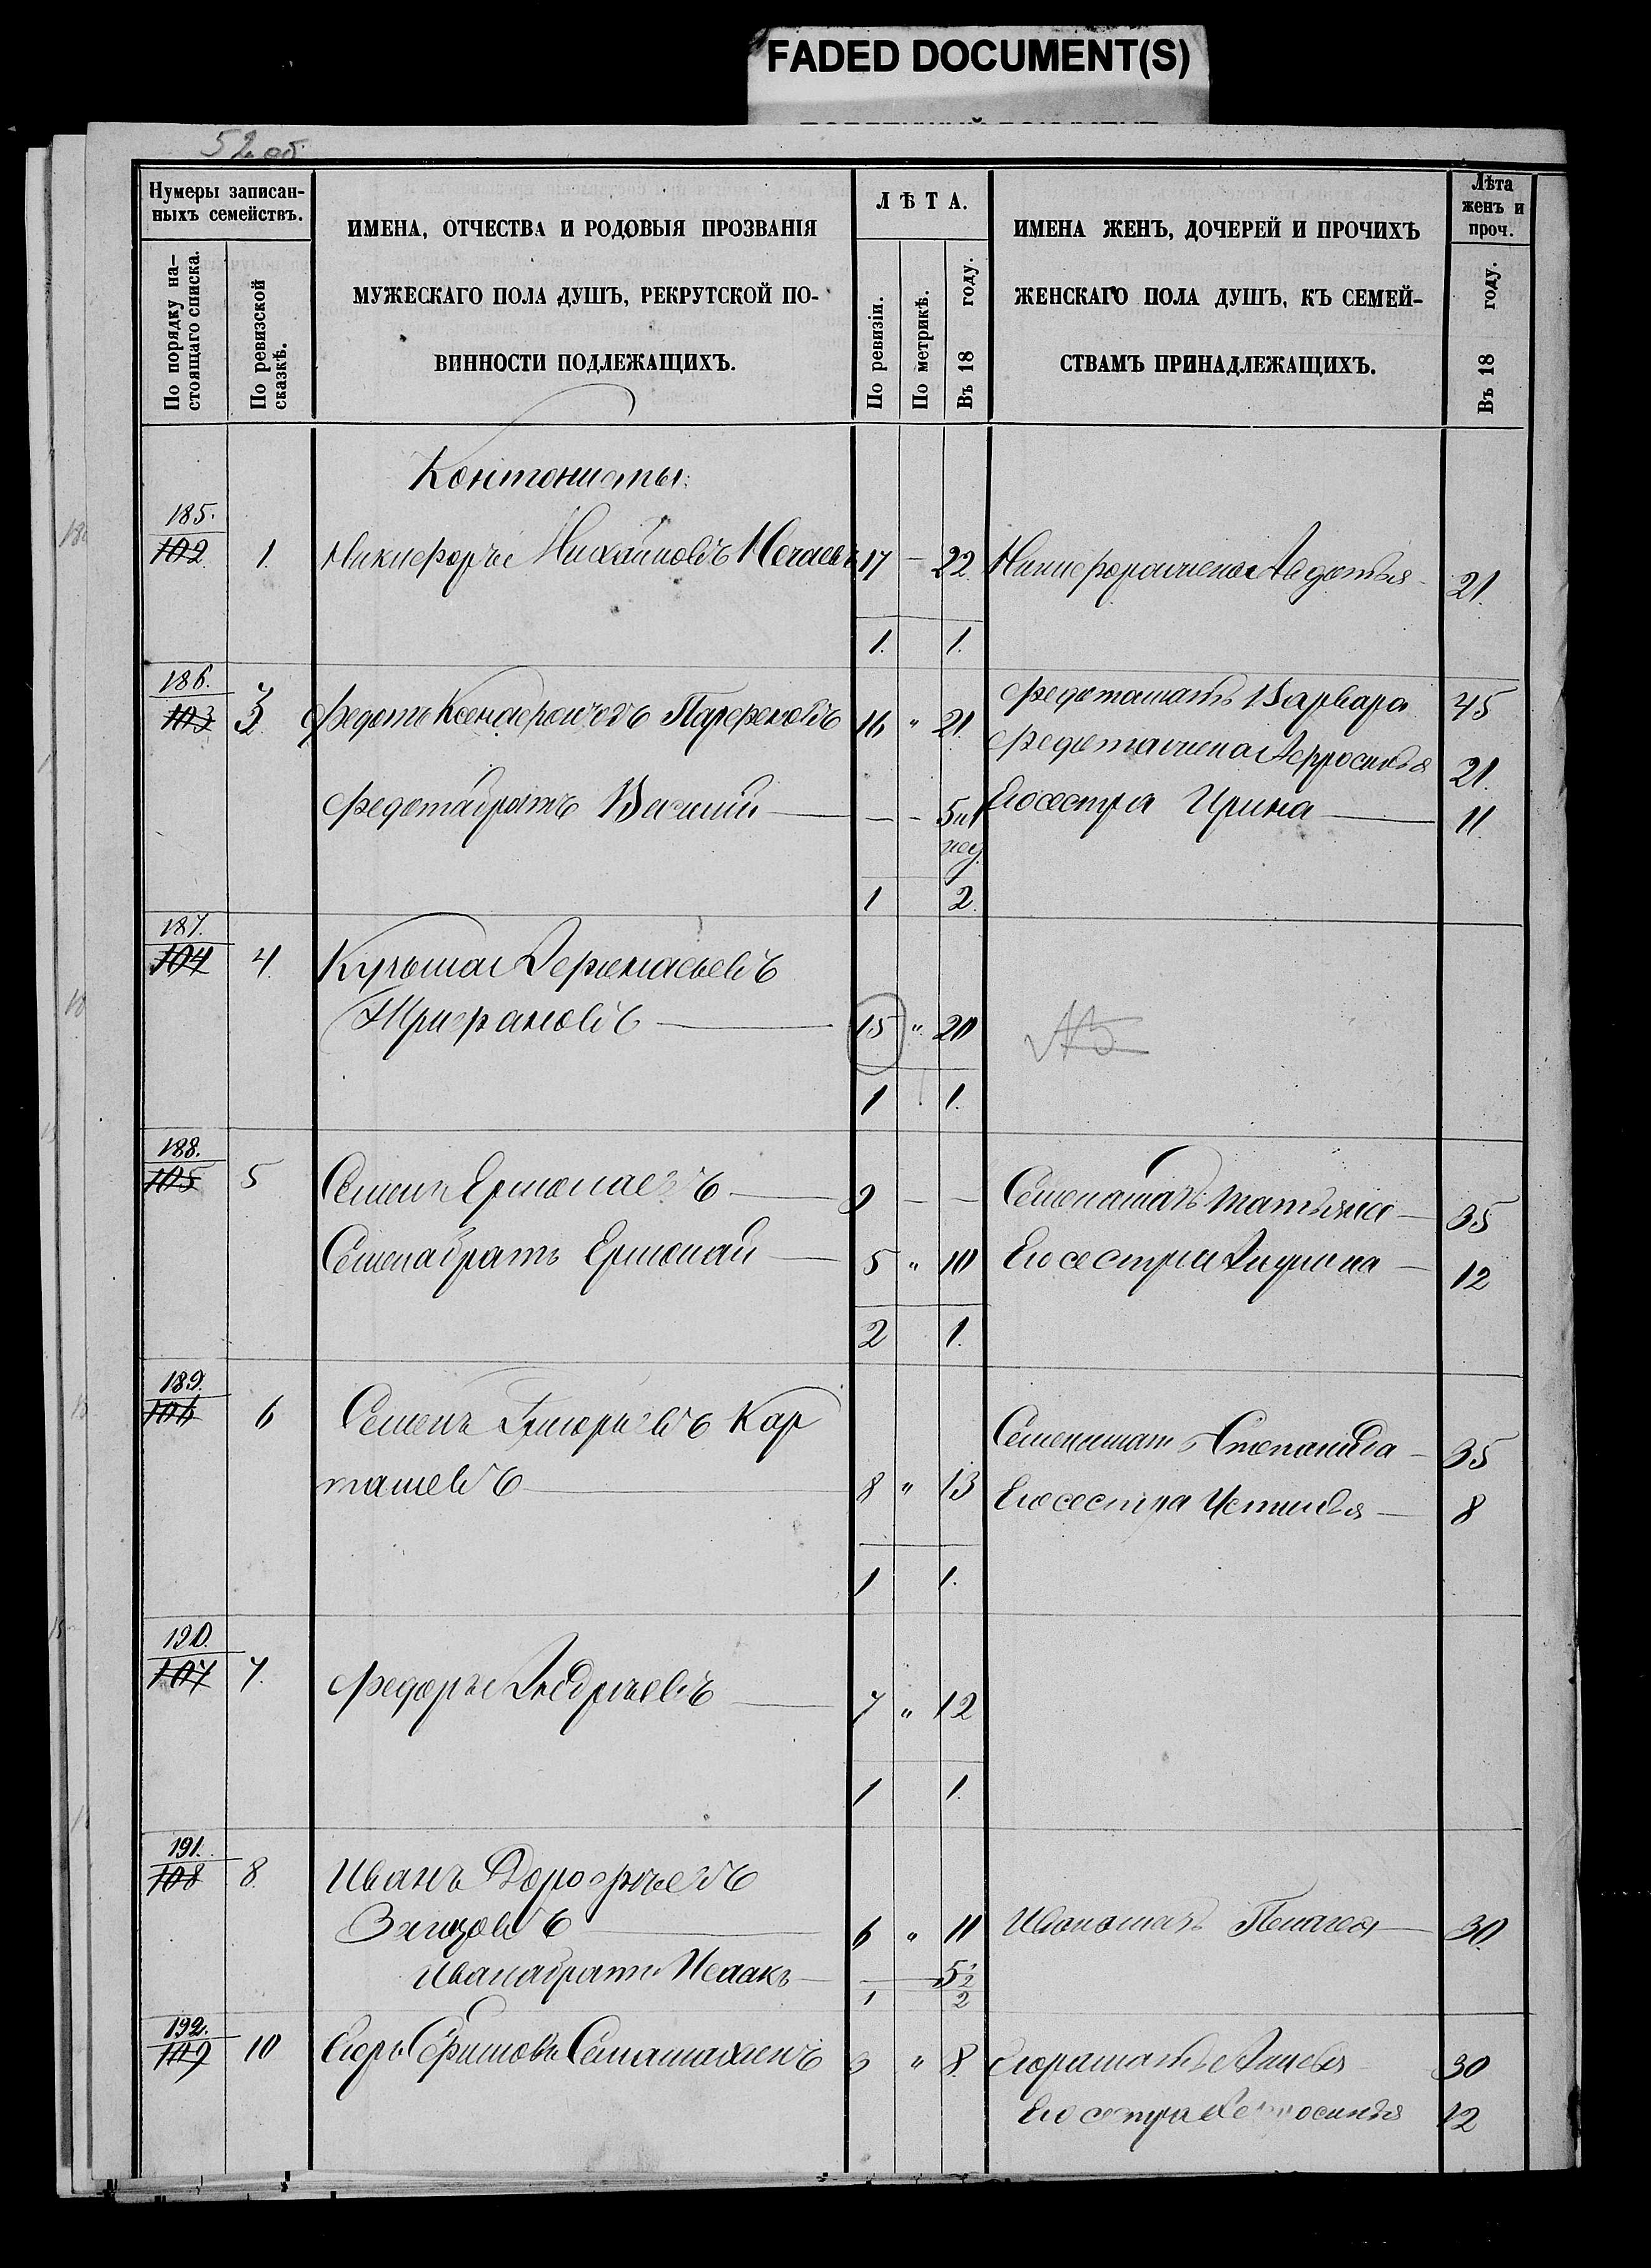 FADED DOCUMENT(S)
52 об.
Нумеры записан-
ныхъ семействъ.
По порядку на-
стоящаго списка.
По ревизской
сказкѣ.
ИМЕНА, ОТЧЕСТВА И РОДОВЫЯ ПРОЗВАНІЯ
МУЖЕСКАГО ПОЛА ДУШЪ, РЕКРУТСКОЙ ПО-
ВИННОСТИ ПОДЛЕЖАЩИХЪ.
ЛѢТА.
По ревизіи.
По метрикѣ.
Въ 18 году.
ИМЕНА ЖЕНЪ, ДОЧЕРЕЙ И ПРОЧИХЪ
ЖЕНСКАГО ПОЛА ДУШЪ, КЪ СЕМЕЙ-
СТВАМЪ ПРИНАДЛЕЖАЩИХЪ.
Лѣта
женъ и
проч.
Въ 18 году.
Контонисты:
185.
102 1. Никифоръ Михайловъ Нечаевъ 17 — 22 Никифора жена Авдотья 21.
1. 1.
186.
103 3 Федотъ Парфеновъ 16 " 21 Федота мать Варвара 45
Федота жена 21.
Федота братъ — — 5 и 1 Его сестра Ирина — 11.
нед.
1 2.
187.
104 4.
Трифановъ — 15 " 20
1 1.
188.
105 5 Семенъ Ермолаевъ — 9 — — Семена мать Татьяна — 35
Семена братъ Ермолай — 5 " 10 Его сестра Акулина — 12
2 1.
189.
106 6 Семенъ Григорьевъ Кар
ташевъ — 8 " 13 Семена мать Степанида — 35
Его сестра Устинья — 8
1 1.
190.
107 7. Федоръ Андреевъ — 7 " 12
1 1.
191.
108 8. Иванъ Дорофѣевъ
6 " 11 Ивана мать Пелагея — 30.
Ивана братъ Исаакъ — 5 1/2
1 2
192.
109 10 Егоръ Ефимовъ 3 " 8. Егора мать 30
Его сестра 12